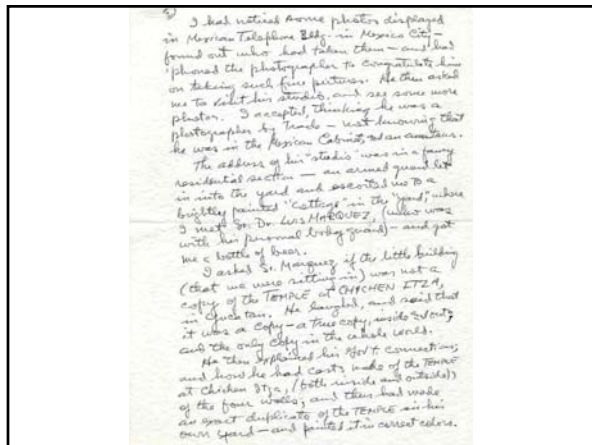 I had noticed some photos displayed
in Mexican Telephone Bldg. in Mexico City –
found out who had taken them – and had
'phoned the photographer to congratulate him
on taking such fine pictures. He then asked
me to visit his studio, and see some more
photos. I accepted, thinking he was a
photographer by trade – not knowing that
he was in the Mexican Cabinet, and an amateur.
The address of his "studio" was in a fancy
residential section – an armed guard let
in into the yard and escorted me to a
brightly painted "cottage" in the "yard," where
I met Sr. Dr. LUIS MARQUEZ, (who was
with his personal body guard) – and got
me a bottle of beer.
I asked Sr. Marquez if the little building
(that we were sitting in) was not a
copy of the TEMPLE at CHICHEN ITZA,
in Yucatan. He laughed, and said that
it was a copy – a true copy, inside & out;
and the only copy in the whole world.
He then explained his Gov't connections;
and how he had casts made of the TEMPLE
at Chichen Itza, (both inside and outside),
of the four walls; and thus had made
an exact duplicate of the TEMPLE in his
own yard – and painted it in correct colors.